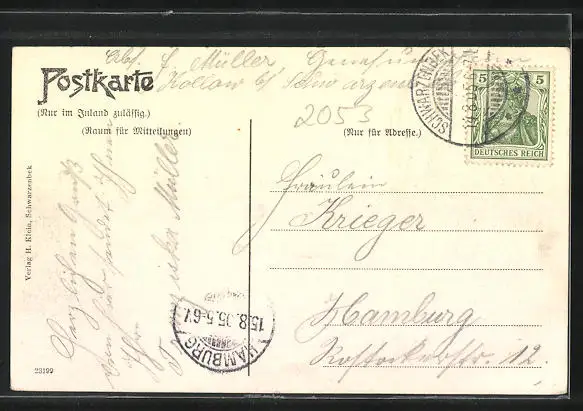 Abs. L. Müller
Kollow b/ Schwarzenbek
Postkarte
(Nur im Inland zulässig.)
(Raum für Mitteilungen)
2053
(Nur für Adresse.)
SCHWARZENBEK
14.8.05.6-7N.
5 5
DEUTSCHES REICH
Fräulein
Krieger
Hamburg
Rostockerstr. 12.
Herzlichen Gruß
sendet Ihnen
Ihre
Müller
HAMBURG
15.8.05.5-6V.
Verlag H. Klein, Schwarzenbek
23199